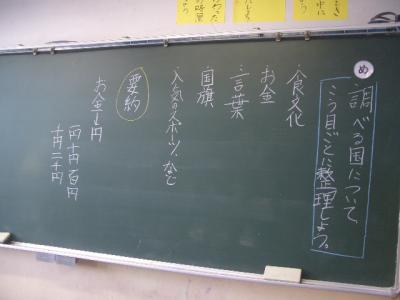 め
調べる国について、
こう目ごとに整理しよう。
・食文化
・お金
・言葉
・国旗
・人気のスポーツ、など
要約
お金→円
一円十円百円